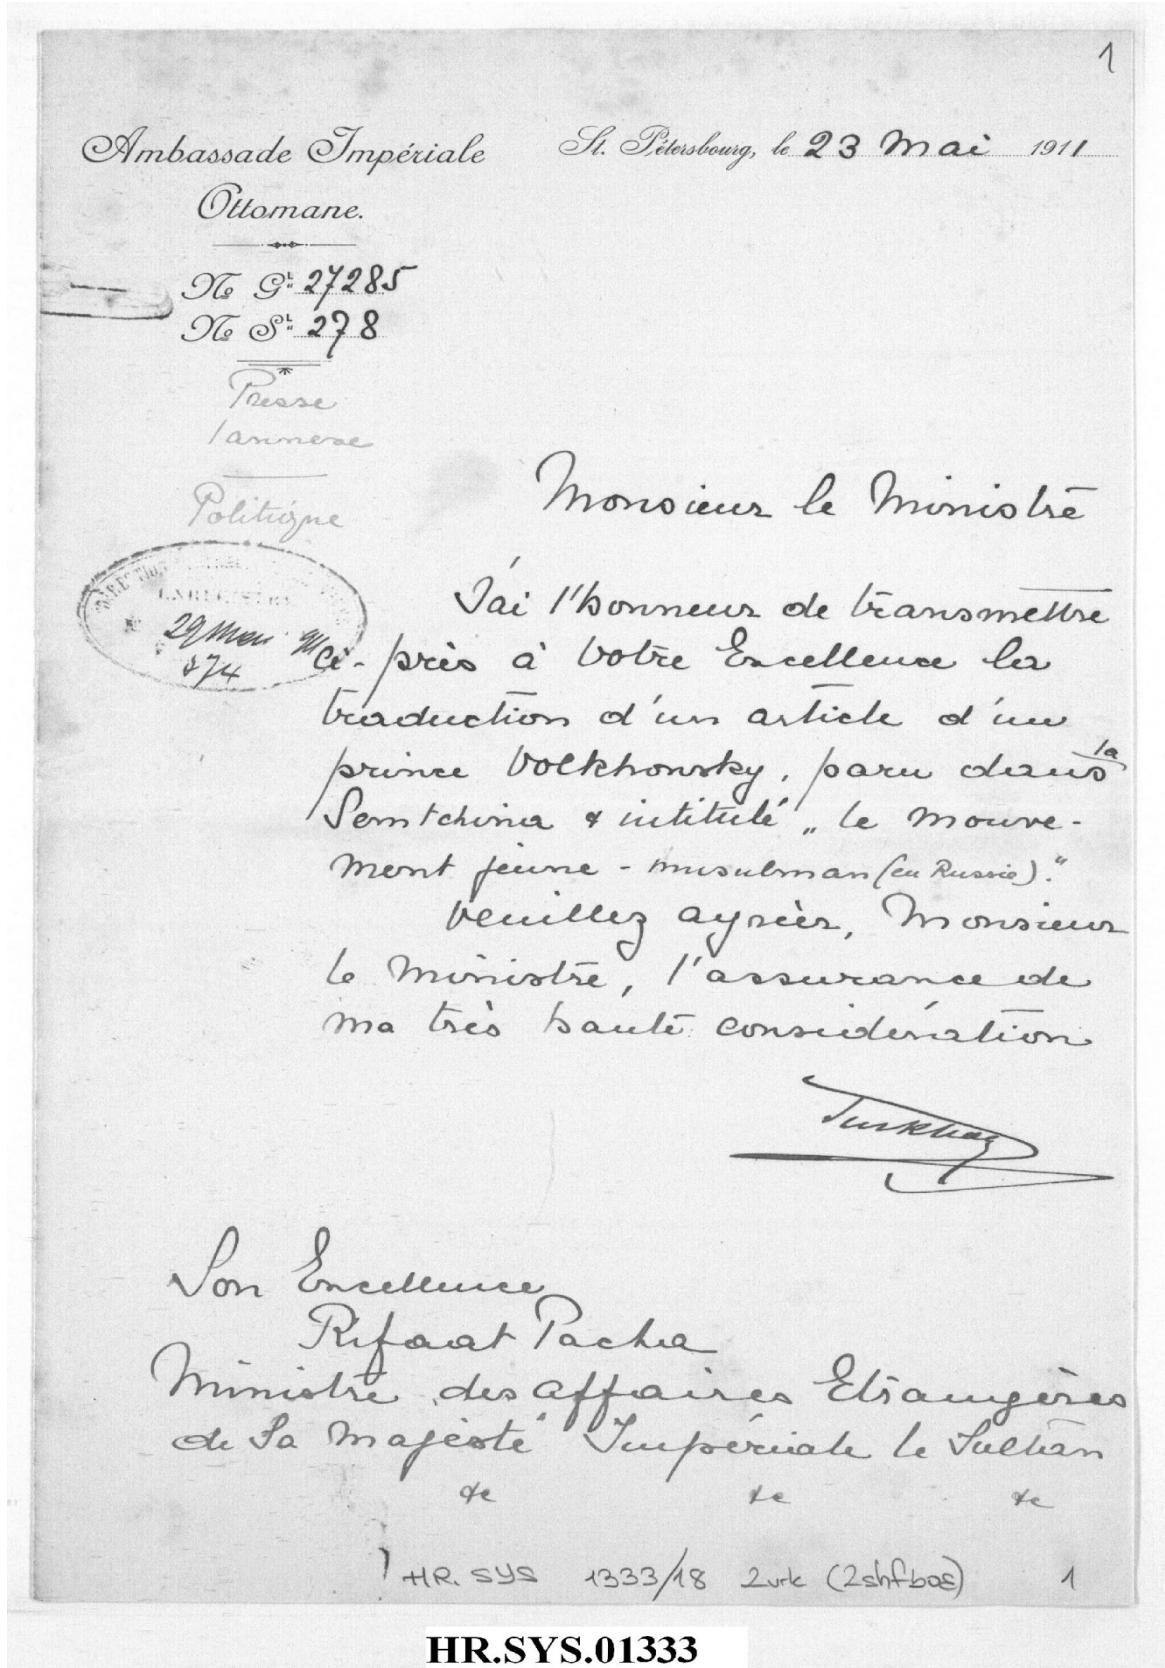 1
Ambassade Impériale
Ottomane.
St. Pétersbourg, le 23 Mai 1911
No Gl. 27285
No Sl. 278
Presse
1 annexe
Politique
ENREGISTRÉ
29 Mai 911
874
Monsieur le Ministre
J'ai l'honneur de transmettre
ci-près à Votre Excellence la
traduction d'un article d'un
prince Volkhonsky, paru dans la
Semtchina & intitulé „le mouve-
ment jeune-musulman (en Russie)."
Veuillez agréer, Monsieur
le Ministre, l'assurance de
ma très haute considération
Turkhan
Son Excellence
Rifaat Pacha
Ministre des Affaires Etrangères
de Sa Majesté Impériale le Sultan
&c &c &c
HR. SYS 1333/18 2vrk (2shf boş) 1
HR.SYS.01333